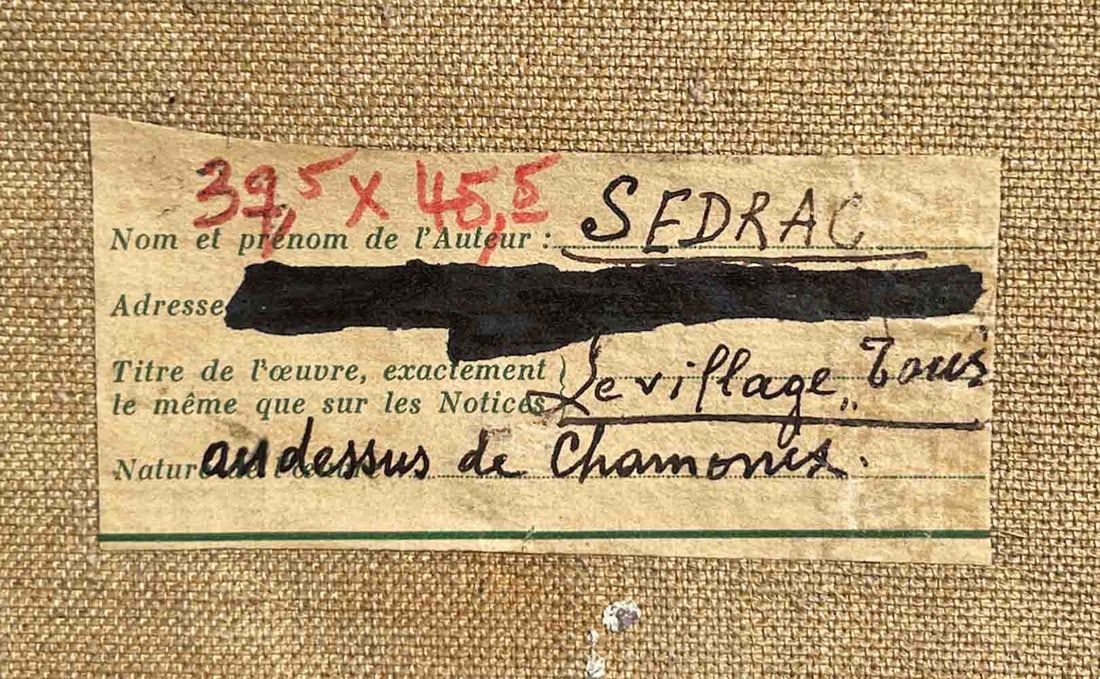 39,5 x 45,5
Nom et prénom de l'Auteur : SEDRAC
Adresse
Titre de l'œuvre, exactement
le même que sur les Notices } Le village Tour
au dessus de Chamonix.
Nature